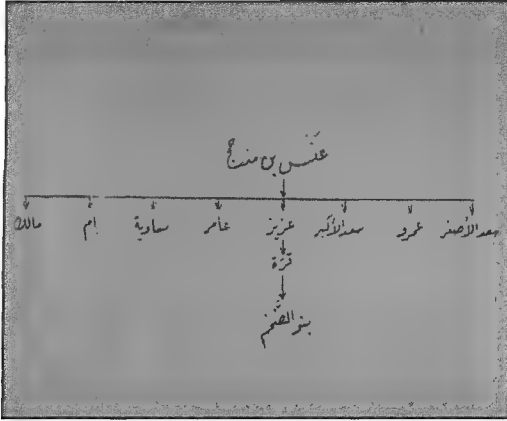 عَنْس بن مذحج
سعد الأصغر عمرو سعد الأكبر عزيز عامر معاوية إم مالك
قرّة
بنو الضخم